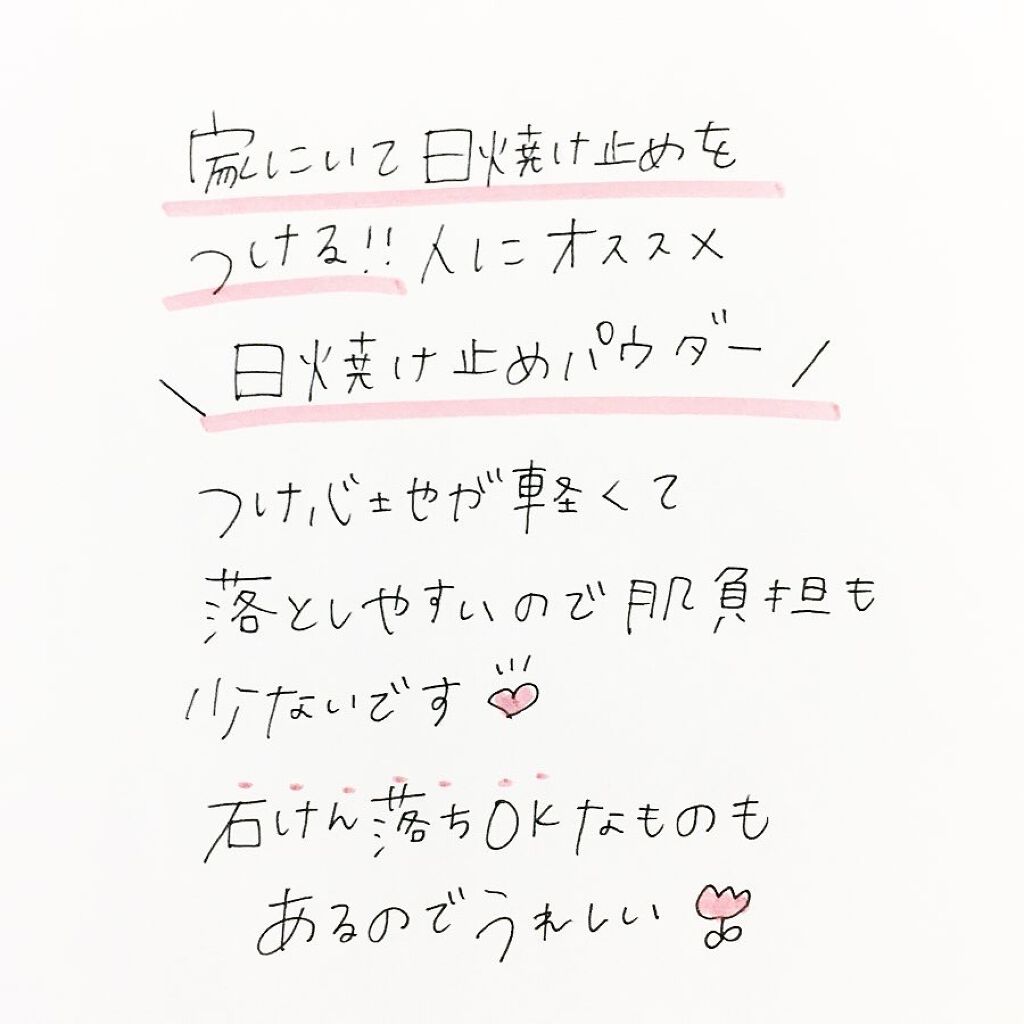 家にいて日焼け止めを
つける!!人にオススメ
\ 日焼け止めパウダー /
つけ心士やが軽くて
落としやすいので肌負担も
少ないです
石けん落ちOKなものも
あるのでうれしい